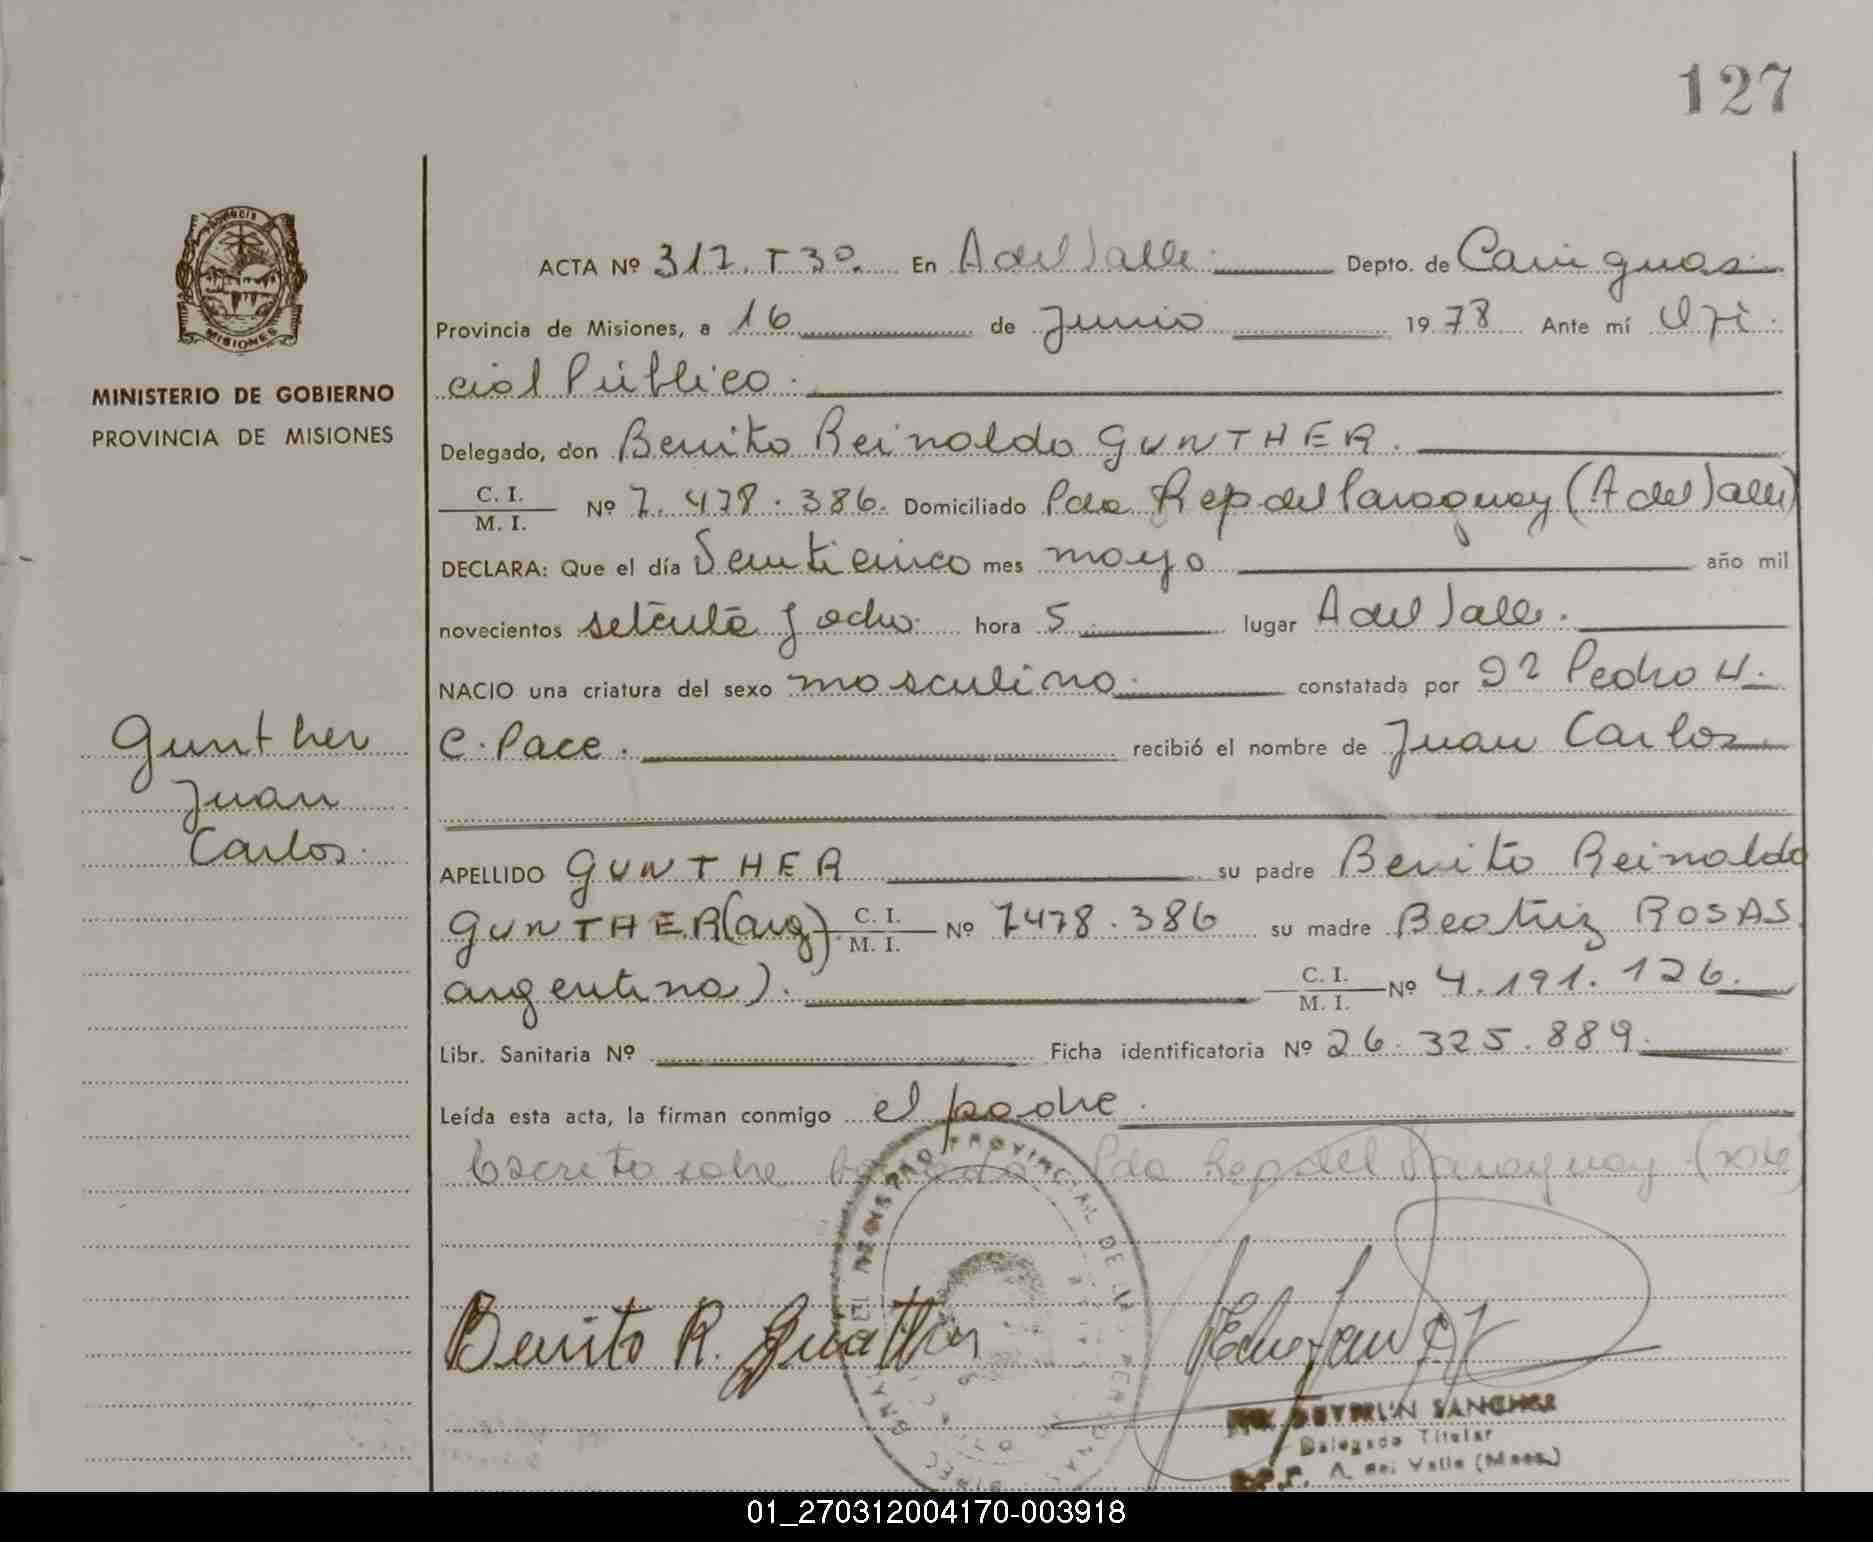 127
ACTA Nº 317. T 3º. En A del Valle. Depto. de Cainguas.
Provincia de Misiones, a 16 de Junio 1978 Ante mí Ofi
cial Público.
MINISTERIO DE GOBIERNO
PROVINCIA DE MISIONES
Delegado, don Benito Reinaldo GUNTHER.
C. I.
M. I. Nº 7.478.386. Domiciliado Pdo Rep del Paraguay (A del Valle)
DECLARA: Que el día Veinticinco mes mayo año mil
novecientos setenta y ocho. hora 5 lugar A del Valle.
NACIO una criatura del sexo masculino. constatada por Dr Pedro H.
C. Pace. recibió el nombre de Juan Carlos
Gunther
Juan
Carlos.
APELLIDO GUNTHER su padre Benito Reinaldo
GUNTHER (arg) C. I.
M. I. Nº 7478.386 su madre Beatriz ROSAS
argentina). C. I.
M. I. Nº 4.191.126.
Libr. Sanitaria Nº Ficha identificatoria Nº 26.325.889.
Leída esta acta, la firman conmigo el padre.
Escrito sobre Pdo Rep del Paraguay.
REGISTRO PROVINCIAL DE LAS PERSONAS
Benito R. Gunther
SANCHEZ
Delegado Titular
A. del Valle (Mnes.)
01_270312004170-003918